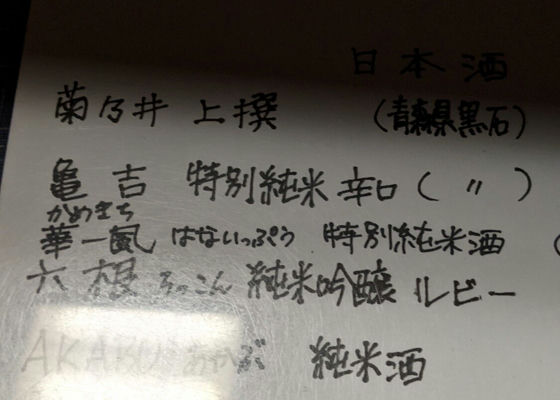 日本酒
菊乃井 上撰 (青森県黒石)
亀吉 特別純米 辛口 ( 〃 )
かめきち
華一風 はないっぷう 特別純米酒 (
六根 ろっこん 純米吟醸 ルビー
AKABU あかぶ 純米酒